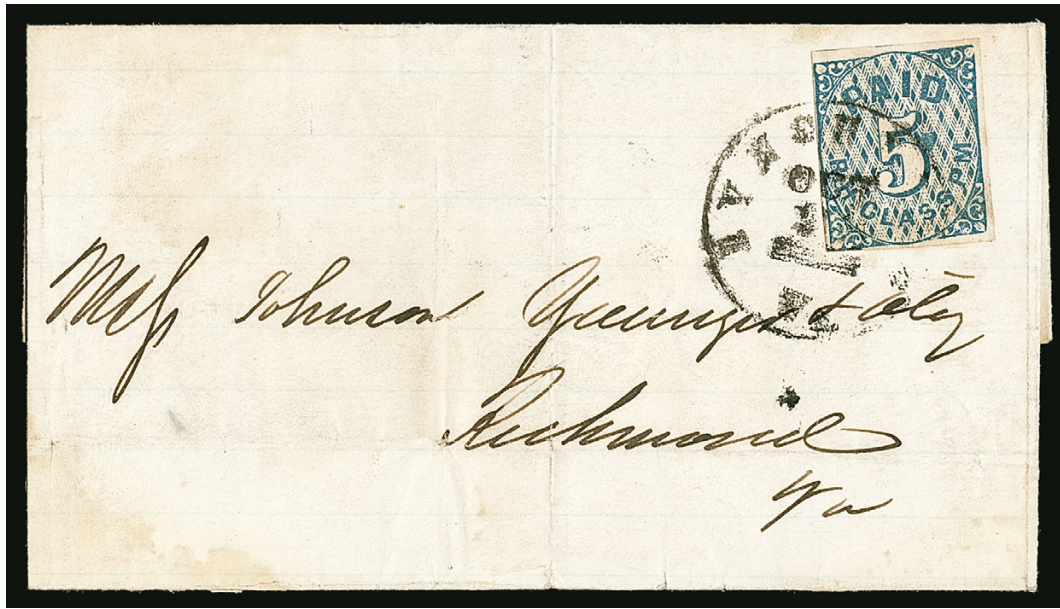 PAID
5
R.H. GLASS. PM
LYNCH
OCT
VA
Mess Johnson Younger & Otey
Richmond
Va